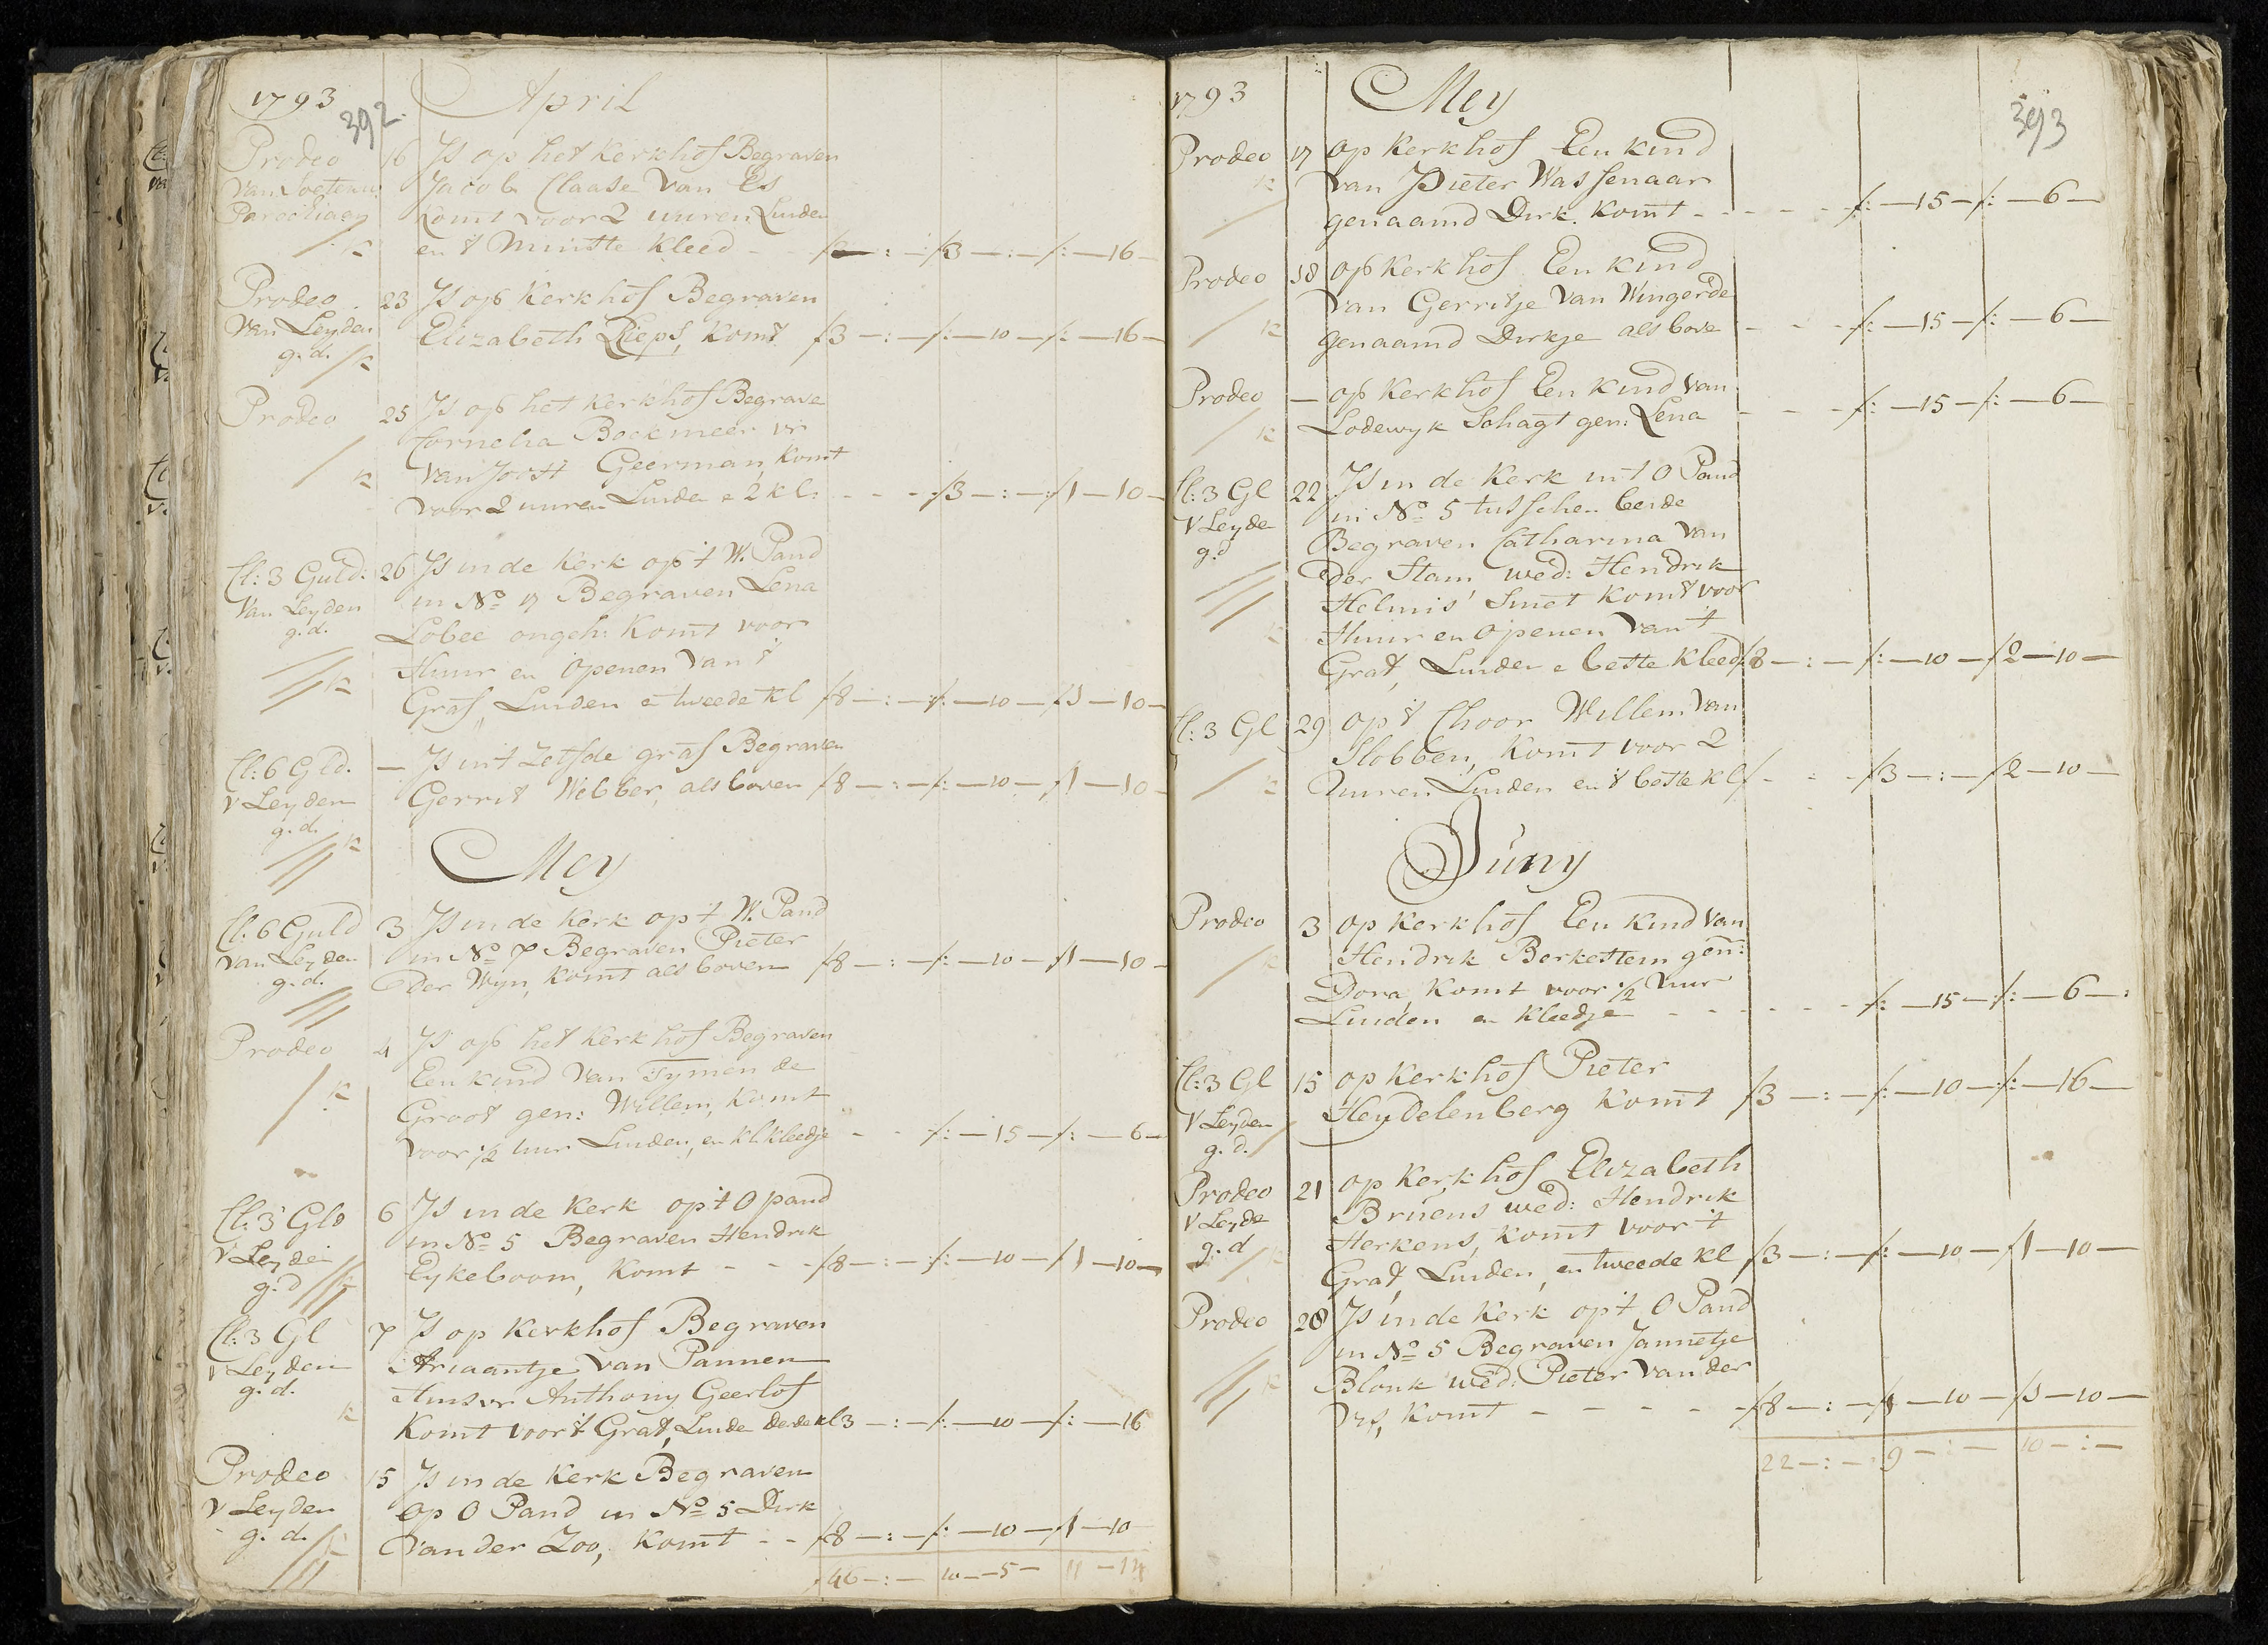 1793 April
392.
Prodeo 16 Js op het Kerkhof Begraven
Jacob Claase Van Es
Parochiaen Komt voor 2 uuren Luiden
/ K en 't Minste Kleed - - ƒ — : — ƒ3 — : — ƒ: — 16 —
Prodeo 23 Js op Kerkhof Begraven
Van Leyden Elizabeth Rieps, Komt ƒ3 — : — ƒ: — 10 — ƒ: — 16 —
g. d. / K
Prodeo 25 Js op het Kerkhof Begrave
Cornelia Bockmeer vr
/ K Van Joost Geerman, Komt
voor 2 uuren Luide e 2 kl: - - - ƒ3 — : — ƒ1 — 10 —
Cl: 3 Guld: 26 Js in de Kerk op 't W. Pand
Van Leyden in No 17 Begraven Lena
g. d. Lobee ongeh: Komt voor
Huur en openen van 't
/// K Graf, Luiden e tweede kl ƒ8 — : — ƒ: — 10 — ƒ1 — 10 —
Cl: 6 Gld. — Js in 't Zelfde graf Begraven
v Leyden Gerrit Webber, als boven ƒ8 — : — ƒ: — 10 — ƒ1 — 10 —
g. d.
/// K
Mey
Cl: 6 Guld 3 Js in de Kerk op 't W. Pand
van Leyden in No 7 Begraven Pieter
g. d. Der Wyn, Komt als boven ƒ8 — : — ƒ: — 10 — ƒ1 — 10 —
///
Prodeo 4 Js op het Kerkhof Begraven
/ K Een kind Van Tymen de
Groot gen: Willem, Komt
voor 1/2 uur Luiden, en kl kleedje - - ƒ: — 15 — ƒ: — 6 —
Cl: 3 Gld 6 Js in de Kerk op 't O pand
V Leyden in No 5 Begraven Hendrik
g. d /// K Eykeboom, Komt - - - ƒ8 — : — ƒ: — 10 — ƒ1 — 10 —
Cl: 3 Gl 7 Js op Kerkhof Begraven
v Leyden Ariaantje van Pannen
g. d. Huisvr Anthony Geerlof
K Komt voor 't Graf, Luide derde kl 3 — : — ƒ: — 10 — ƒ: — 16
Prodeo 15 Js in de Kerk Begraven
V Leyden op O Pand in No 5 Dirk
g. d. /// K Van der Zoo, Komt - - ƒ8 — : — ƒ: — 10 — ƒ1 — 10
46 — : — 10 — 5 — 11 — 14
1793 Mey
393
Prodeo 17 op Kerkhof Een kind
K van Pieter Wassenaar
/ genaamd Dirk. Komt - - - - - ƒ: — 15 — ƒ: — 6 —
Prodeo 18 op Kerkhof Een kind
van Gerritje Van Wingerde
/ K genaamd Dirkje als bove - - - ƒ: — 15 — ƒ: — 6 —
Prodeo — op Kerkhof Een kind van
/ K Lodewyk Schagt gen: Lena - - - ƒ: — 15 — ƒ: — 6 —
Cl: 3 Gl 22 Js in de Kerk in 't O Pand
V Leyde in No 5 tusschen beide
g. d Begraven Catharina van
/// der Stam wed: Hendrik
Helmis Smet Komt voor
K Huur en openen van 't
Graf, Luiden e beste kleed ƒ8 — : — ƒ: — 10 — ƒ2 — 10 —
Cl: 3 Gl 29 op 't Choor Willem van
Slobben, Komt voor 2
/ K Uuren Luiden en 't beste kl ƒ - - - ƒ3 — : — ƒ2 — 10 —
Juny
Prodeo 3 op Kerkhof Een kind van
/ K Hendrik Berkestein gen:
Dora, Komt voor 1/2 Uur
Luiden en kleedje - - - - - - ƒ: — 15 — ƒ: — 6 — :
Cl: 3 Gl 15 op Kerkhof Pieter
V Leyden Heydelenberg Komt ƒ3 — : — ƒ: — 10 — ƒ: — 16 —
g. d. /
Prodeo 21 op Kerkhof Elizabeth
V Leyde Bruens wed: Hendrik
g. d Herkens, Komt voor 't
/ K Graf, Luiden, en tweede kl ƒ3 — : — ƒ: — 10 — ƒ1 — 10 —
Prodeo 28 Js in de Kerk op 't O Pand
in No 5 Begraven Jannetje
/// K Blonk wed: Pieter van der
Komt - - - - - ƒ8 — : — ƒ: — 10 — ƒ1 — 10 —
22 — : — 9 — : — 10 — : —